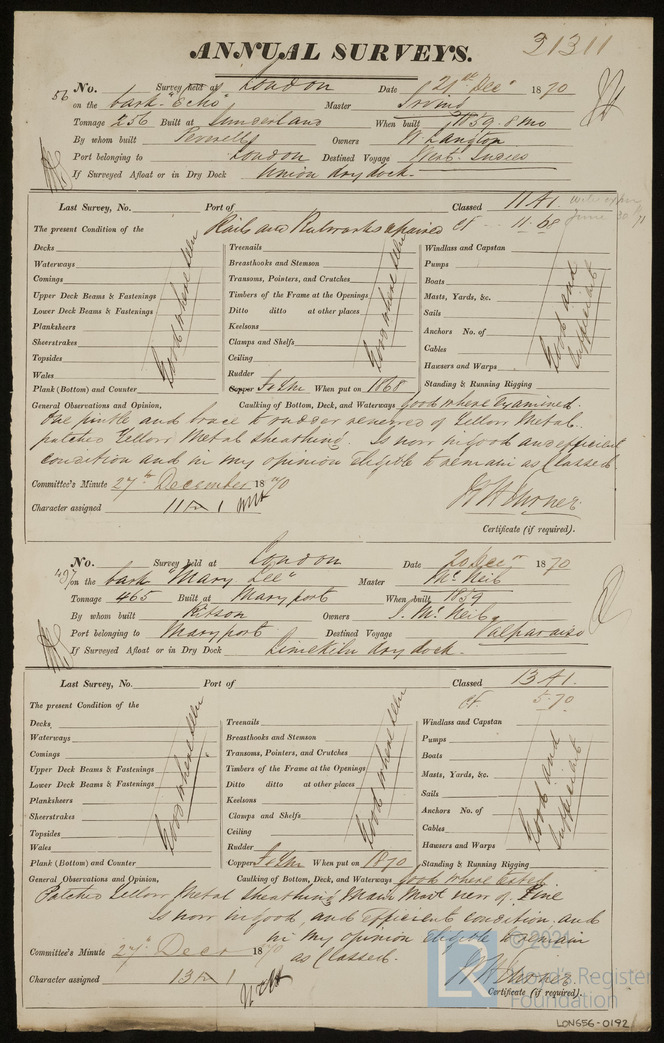 31311
ANNUAL SURVEYS.
56 No. Survey held at London Date 20th Dec 1870
on the bark "Echo" Master Irving
Tonnage 256 Built at Sunderland When built 1859. 8 mo
By whom built Owners W. Langton
Port belonging to London Destined Voyage West Indies
If Surveyed Afloat or in Dry Dock Union dry dock.
Last Survey, No. Port of Classed 11 A1.
The present Condition of the Rails and Bulwarks repaired cf 11.68 June 30/71
Decks Treenails Windlass and Capstan
Waterways Breasthooks and Stemson Pumps
Comings Transoms, Pointers, and Crutches Boats
Upper Deck Beams & Fastenings Timbers of the Frame at the Openings Masts, Yards, &c.
Lower Deck Beams & Fastenings Ditto ditto at other places Sails
Planksheers Keelsons Anchors No. of
Sheerstrakes Clamps and Shelfs Cables
Topsides Ceiling Hawsers and Warps
Wales Rudder Standing & Running Rigging
Good where seen
Good where seen
Good and Sufficient
Plank (Bottom) and Counter Copper When put on 1868
General Observations and Opinion, Caulking of Bottom, Deck, and Waterways good where Examined.
One pintle and brace to rudder renewed of Yellow Metal.
patched Yellow Metal sheathing. Is now in good and efficient
condition and in my opinion eligible to remain as Classed
Committee's Minute 27th December 1870
Character assigned 11 A 1
W H Turner
Certificate (if required).
No. Survey held at London Date 20 Decr 1870
on the bark "Mary Lee" Master McNeil
Tonnage 465 Built at Maryport When built 1859
By whom built Ritson Owners J. McNeil
Port belonging to Maryport Destined Voyage Valparaiso
If Surveyed Afloat or in Dry Dock Limekiln dry dock.
Last Survey, No. Port of Classed 13 A1.
The present Condition of the cf 5.70
Decks Treenails Windlass and Capstan
Waterways Breasthooks and Stemson Pumps
Comings Transoms, Pointers, and Crutches Boats
Upper Deck Beams & Fastenings Timbers of the Frame at the Openings Masts, Yards, &c.
Lower Deck Beams & Fastenings Ditto ditto at other places Sails
Planksheers Keelsons Anchors No. of
Sheerstrakes Clamps and Shelfs Cables
Topsides Ceiling Hawsers and Warps
Wales Rudder
Good where seen
Good where seen
Good and Sufficient
Plank (Bottom) and Counter Copper When put on 1870 Standing & Running Rigging
General Observations and Opinion, Caulking of Bottom, Deck, and Waterways good where tested.
Patched Yellow Metal sheathing Main Mast new of Pine
Is now in good, and efficient condition and
in my opinion eligible to remain
as Classed.
Committee's Minute 27th Decr 1870
Character assigned 13 A 1
W H Turner
Certificate (if required).
© 2021
LR Lloyd's Register
Foundation
LON656-0192